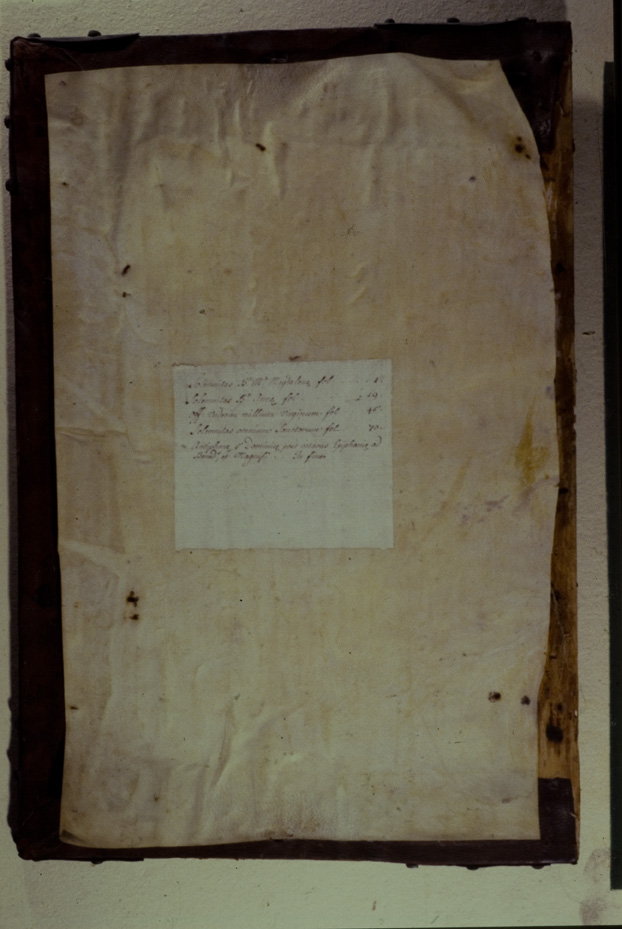 Solemnitas S. M. Magdalena fol
Solemnitas S. Anna fol
Off. millium Virginum fol 45
Solemnitas omnium Sanctorum fol. 70.
Antiphona Dominica post octavas Epiphania ad
Magnif. In fine